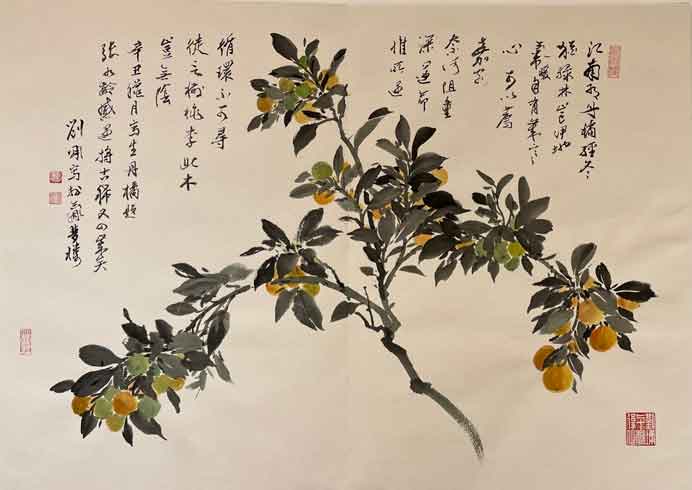 江南有丹橘經冬
猶綠林豈伊地
氣暖自有歲寒
心可以薦
嘉客
奈何阻重
深運命
惟所遇
循環不可尋
徒言樹桃李此木
豈無陰
辛丑臘月寫生丹橘題
張九齡感遇將古稀又四
寫於